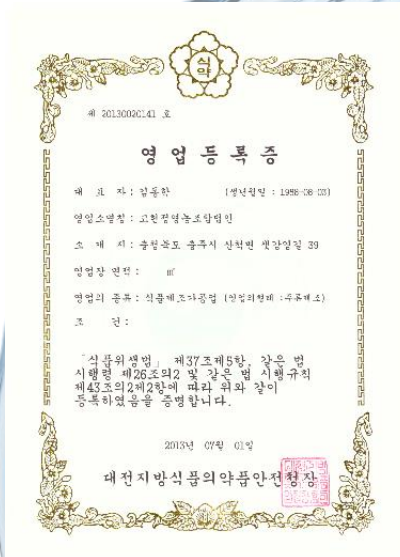 식약
제 20130020141 호
영업등록증
대 표 자 : 김동한 (생년월일 : 1958-08-03)
영업소명칭 : 고헌정영농조합법인
소 재 지 : 충청북도 충주시 산척면 샛강앞길 39
영업장 면적 : ㎡
영업의 종류 : 식품제조가공업 (영업의형태 : 주류제조)
조 건 :
「식품위생법」 제37조제5항, 같은 법
시행령 제26조의2 및 같은 법 시행규칙
제43조의2제2항에 따라 위와 같이
등록하였음을 증명합니다.
2013년 07월 01일
대전지방식품의약품안전청장